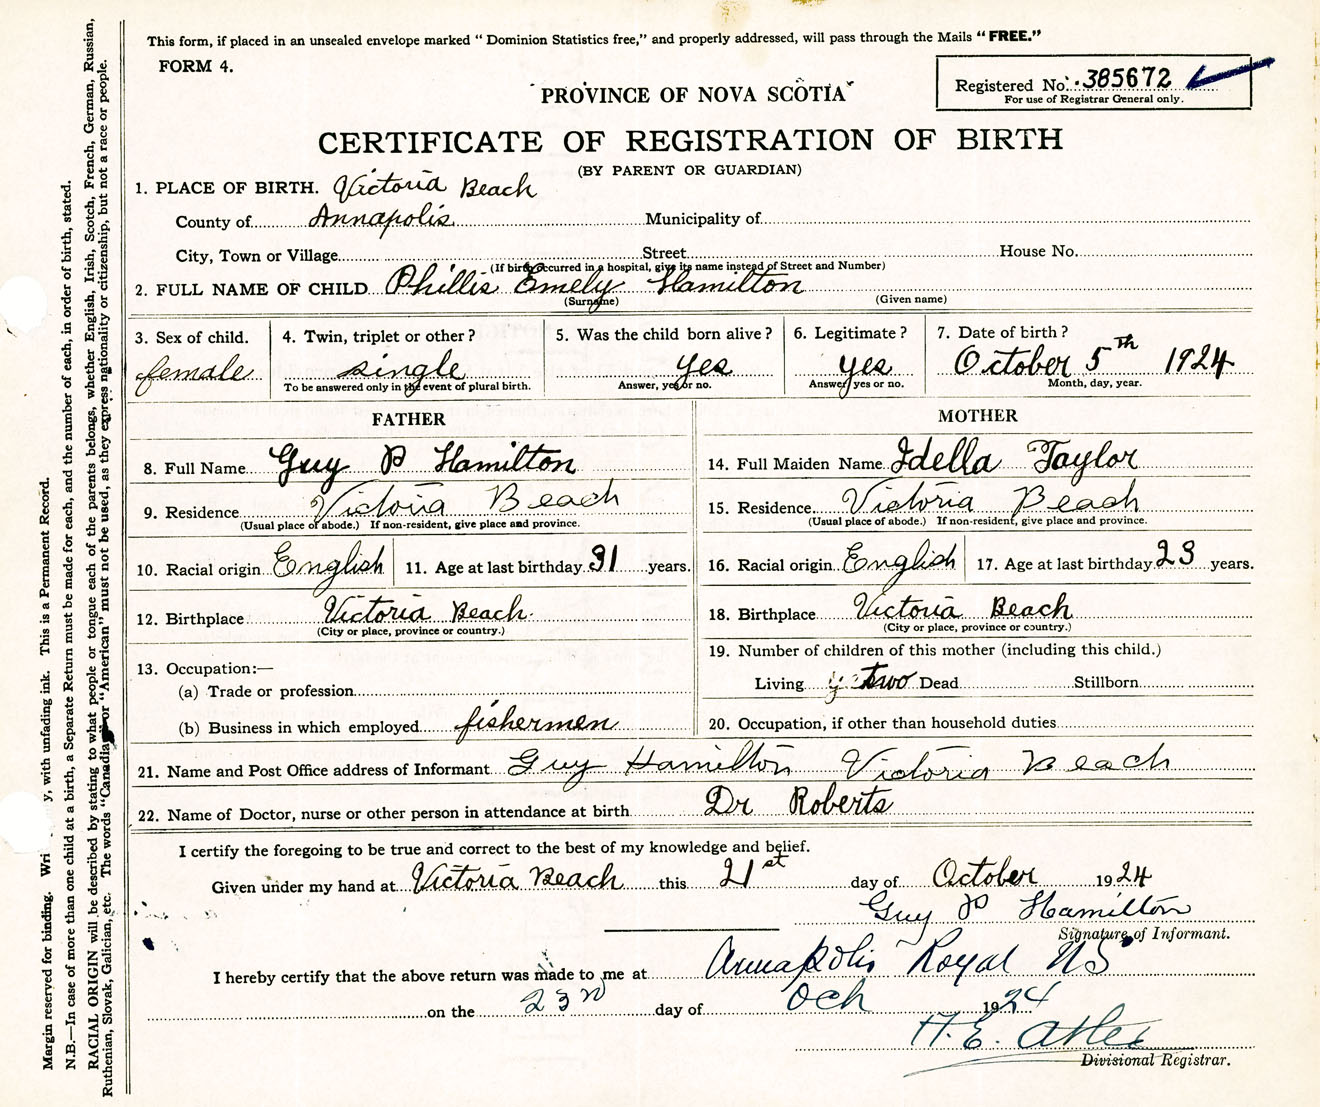 This form, if placed in an unsealed envelope marked "Dominion Statistics free," and properly addressed, will pass through the Mails "FREE."
FORM 4.
Registered No. 385672
For use of Registrar General only.
PROVINCE OF NOVA SCOTIA
CERTIFICATE OF REGISTRATION OF BIRTH
(BY PARENT OR GUARDIAN)
1. PLACE OF BIRTH. Victoria Beach
County of Annapolis Municipality of
City, Town or Village Street House No.
(If birth occurred in a hospital, give its name instead of Street and Number)
2. FULL NAME OF CHILD Phillis Emely Hamilton
(Surname) (Given name)
3. Sex of child. 4. Twin, triplet or other? 5. Was the child born alive? 6. Legitimate? 7. Date of birth?
female single yes yes October 5th 1924
To be answered only in the event of plural birth. Answer, yes or no. Answer, yes or no. Month, day, year.
FATHER MOTHER
8. Full Name Guy P Hamilton 14. Full Maiden Name Idella Taylor
9. Residence Victoria Beach 15. Residence Victoria Beach
(Usual place of abode.) If non-resident, give place and province. (Usual place of abode.) If non-resident, give place and province.
10. Racial origin English 11. Age at last birthday 31 years. 16. Racial origin English 17. Age at last birthday 23 years.
12. Birthplace Victoria Beach 18. Birthplace Victoria Beach
(City or place, province or country.) (City or place, province or country.)
13. Occupation:— 19. Number of children of this mother (including this child.)
(a) Trade or profession Living two Dead Stillborn
(b) Business in which employed fishermen 20. Occupation, if other than household duties
21. Name and Post Office address of Informant Guy Hamilton Victoria Beach
22. Name of Doctor, nurse or other person in attendance at birth Dr Roberts
I certify the foregoing to be true and correct to the best of my knowledge and belief.
Given under my hand at Victoria Beach this 21st day of October 1924
Guy P Hamilton
Signature of Informant.
I hereby certify that the above return was made to me at Annapolis Royal NS
on the 23rd day of Oct 1924
H. E.
Divisional Registrar.
Margin reserved for binding. Wri y, with unfading ink. This is a Permanent Record.
N.B.—In case of more than one child at a birth, a Separate Return must be made for each, and the number of each, in order of birth, stated.
RACIAL ORIGIN will be described by stating to what people or tongue each of the parents belongs, whether English, Irish, Scotch, French, German, Russian,
Ruthenian, Slovak, Galician, etc. The words "Canadian" or "American" must not be used, as they express nationality or citizenship, but not a race or people.